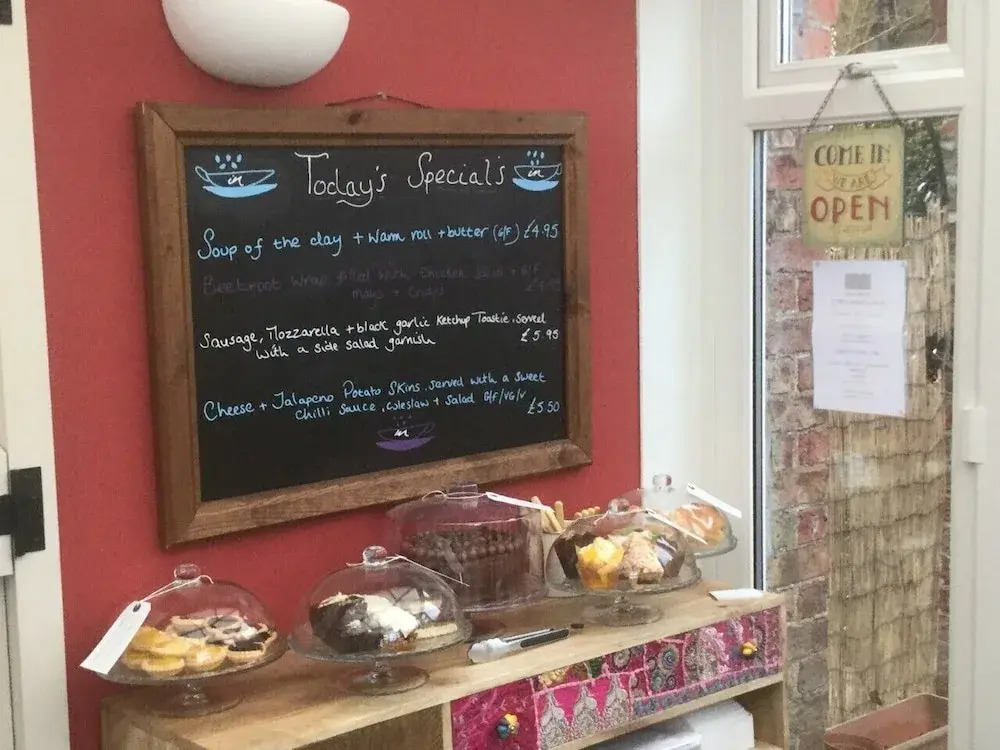 in Today's Special's in
Soup of the day + warm roll + butter (G/F) £4.95
Beetroot Wrap filled with Chicken + G/F
mayo +
Sausage, Mozzarella + black garlic Ketchup Toastie, served
with a side salad garnish £5.95
Cheese + Jalapeno Potato Skins, served with a sweet
chilli sauce, coleslaw + salad G/F/VG/V £5.50
in
COME IN
WE ARE
OPEN